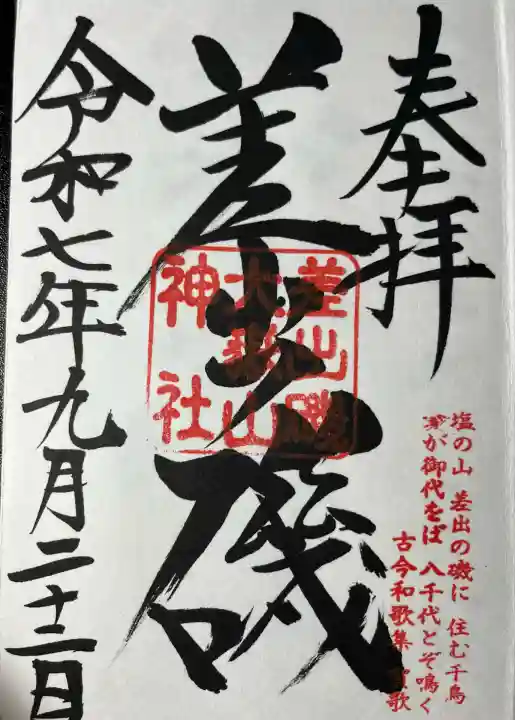 奉拝
差出磯
差出磯
大嶽山
神社
塩の山 差出の磯に 住む千鳥
君が御代をば 八千代とぞ鳴く
古今和歌集 賀歌
令和七年九月二十二日